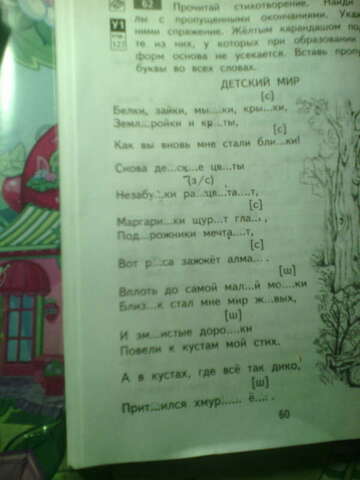 62 Прочитай стихотворение. Найди
лы с пропущенными окончаниями. Ука
ними спряжение. Жёлтым карандашом под
те из них, у которых при образовании
форм основа не усекается. Вставь пропу
буквы во всех словах.
У1
ДЕТСКИЙ МИР
[с]
Белки, зайки, мы...ки, кры...ки,
Земл...ройки и кр...ты,
[с]
Как вы вновь мне стали бли...ки!
Снова де...ск...е цв...ты
(з/с)
Незабу...ки ра...цв...та...т,
[с]
Маргари...ки щур...т гла...,
Под...рожники мечта...т,
[с]
Вот р...са зажжёт алма... .
[ш]
Вплоть до самой мал...й мо...ки
Близ...к стал мне мир ж...вых,
[ш]
И зм...истые доро...ки
Повели к кустам мой стих.
А в кустах, где всё так дико,
[ш]
Прит...ился хмур...... ё... .
60